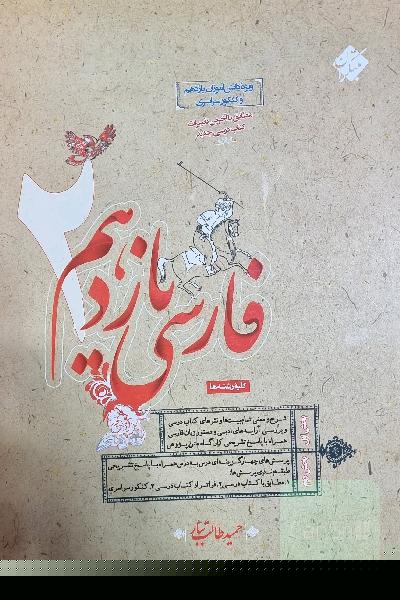 مبتکران
ویژه دانش‌آموزان یازدهم
و کنکور سراسری
مطابق با آخرین تغییرات
کتاب درسی جدید
۲
فارسی یازدهم
کلیه رشته‌ها
شرح و معنی تمام بیت‌ها و نثرهای کتاب درسی
و بررسی آرایه‌های ادبی و دستور زبان فارسی
همراه با پاسخ تشریحی کارگاه متن پژوهی
پرسش‌های چهارگزینه‌ای درس به درس همراه با پاسخ تشریحی
طبقه‌بندی پرسش‌ها
۱. مطابق با کتاب درسی ۲. فراتر از کتاب درسی ۳. کنکور سراسری
حمید طالب تبار